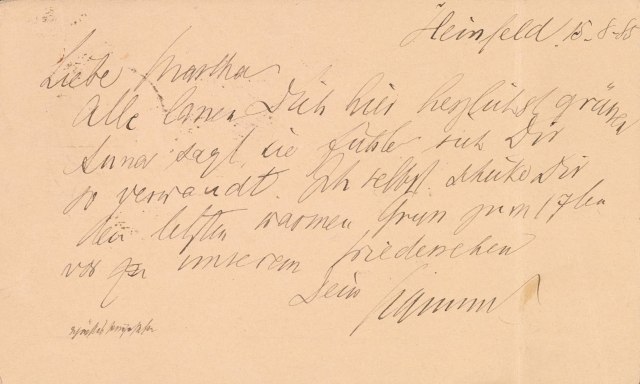 Heinfeld 15-8-85
Liebe Martha
Alle lassen Dich hier herzlichst grüßen
Anna sagt, sie fühle sich Dir
so verwandt. Ich selbst schicke Dir
den letzten warmen Gruss zum 17ten
vor unserem Wiedersehen
Dein Sigmund